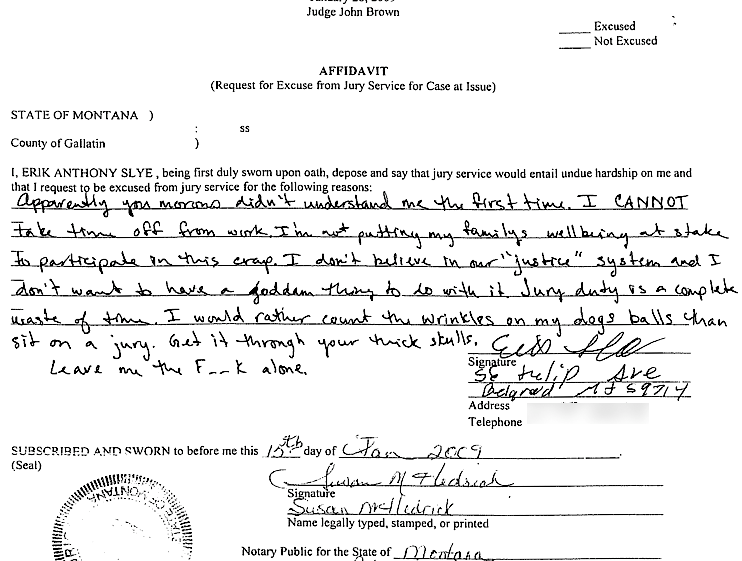 January 26, 2009
Judge John Brown
____ Excused
____ Not Excused
AFFIDAVIT
(Request for Excuse from Jury Service for Case at Issue)
STATE OF MONTANA )
: ss
County of Gallatin )
I, ERIK ANTHONY SLYE , being first duly sworn upon oath, depose and say that jury service would entail undue hardship on me and
that I request to be excused from jury service for the following reasons:
Apparently you morons didn't understand me the first time. I CANNOT
take time off from work. I'm not putting my familys wellbeing at stake
to participate in this crap. I don't believe in our "justice" system and I
don't want to have a goddam thing to do with it. Jury duty is a complete
waste of time. I would rather count the wrinkles on my dogs balls than
sit on a jury. Get it through your thick skulls.
Leave me the F--k alone.
Signature
58 Tulip Ave
Belgrade MT 59714
Address
Telephone
SUBSCRIBED AND SWORN to before me this 15th day of Jan 2009
(Seal)
Susan McHedrick
Signature
Susan McHedrick
Name legally typed, stamped, or printed
Notary Public for the State of Montana